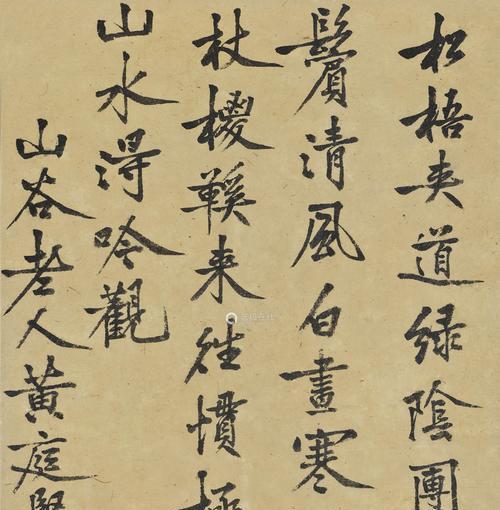 松梧夹道绿陰團
鬢清風白晝寒
杖㮨鞵来往慣極
山水得吟觀
山谷老人黄庭堅